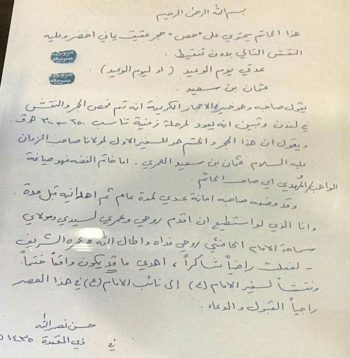 بسم الله الرحمن الرحيم
هذا الخاتم يحتوي على "حص" حجر عقيق يماني أخضر وعليه
النقش التالي بدون تنقيط.
عدتي يوم الوعيد (او ليوم الوعيد)
عثمان بن سعيد.
يقول صاحبه وهو خبير بالأحجار الكريمة انه تم فحص الحجر والنقش
في لندن وتبين انه يعود لمرحلة زمنية تناسب ٢٥٠ - ٣٠٠ هـ ق.
ويقول ان هذا الحجر والختم هو للسفير الاول لمولانا صاحب الزمان
عليه السلام عثمان بن سعيد العمري. اما خاتم الفضة فهو صياغة
المهدي الى صاحب الخاتم.
وقد وضعه صاحبه امانة عندي لمدة عام ثم اهداني قبل مدة.
وانا الذي لو استطيع ان اقدم روحي وعمري لسيدي ومولاي
سماحة الامام الخامنئي روحي فداه واطال الله عمره الشريف
- لفعلت راضياً شاكراً، اهدي ما قد يكون واقعاً ختماً
ونقشاً لسفير الامام (ع) الى نائب الامام (ع) في هذا العصر
راجياً القبول والدعاء.
حسن نصر الله
في ذي القعدة ١٤٣٥